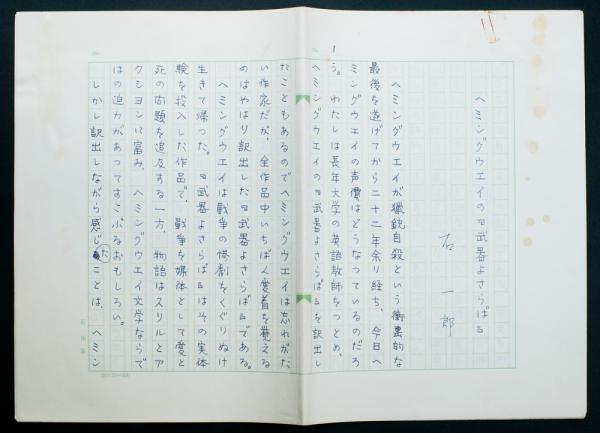 ヘミングウエイの『武器よさらば』
石 一郎
1
ヘミングウエイが猟銃自殺という衝撃的な
最後を遂げてから二十二年余り経ち、今日ヘ
ミングウエイの声価はどうなっているのだろ
う。わたしは長年大学の英語教師をつとめ、
ヘミングウエイの『武器よさらば』を訳出し
たこともあるのでヘミングウエイは忘れがた
い作家だが、全作品中いちばん愛着を覚える
のはやはり訳出した『武器よさらば』である。
ヘミングウエイは戦争の惨劇をくぐりぬけ
生きて帰った。『武器よさらば』はその実体
験を投入した作品で、戦争を媒体として愛と
死の問題を追及する一方、物語はスリルとア
クシヨンに富み、ヘミングウエイ文学ならで
はの迫力があってすこぶるおもしろい。
しかし訳出しながら感じたことは、ヘミン